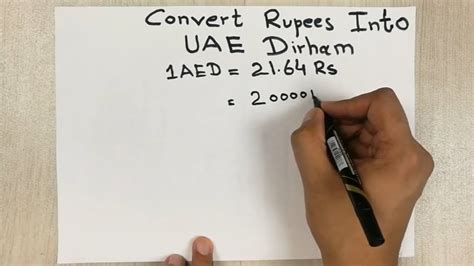 Convert Rupees Into
UAE Dirham
1AED = 21.64 Rs
= 20000